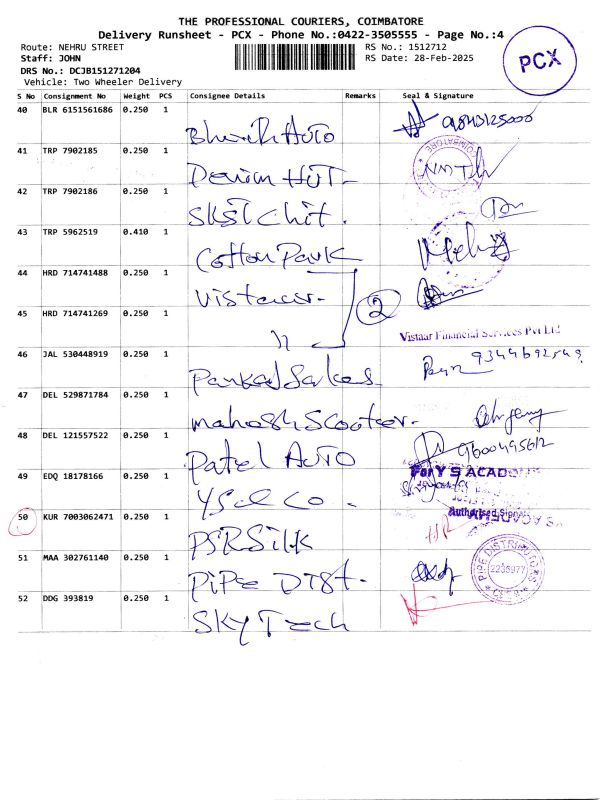 THE PROFESSIONAL COURIERS, COIMBATORE
Delivery Runsheet - PCX - Phone No.:0422-3505555 - Page No.:4
Route: NEHRU STREET
RS No.: 1512712
Staff: JOHN
RS Date: 28-Feb-2025
DRS No.: DCJB151271204
Vehicle: Two Wheeler Delivery
PCX
S No Consignment No Weight PCS Consignee Details Remarks Seal & Signature
40 BLR 6151561686 0.250 1
Auto 9843125000
41 TRP 7902185 0.250 1
COIMBATORE
42 TRP 7902186 0.250 1
Chit.
43 TRP 5962519 0.410 1
Cotton Park
44 HRD 714741488 0.250 1
2
45 HRD 714741269 0.250 1
Vistaar Financial Services Pvt Ltd
46 JAL 530448919 0.250 1
47 DEL 529871784 0.250 1
Scooter.
48 DEL 121557522 0.250 1
Patel Auto 9600495612
49 EDQ 18178166 0.250 1
For Y S ACAD
Authorised Sign
50 KUR 7003062471 0.250 1
PSR Silk
51 MAA 302761140 0.250 1
Pipe Dist.
PIPE DISTRIBUTORS
2235977
52 DDG 393819 0.250 1
Sky Tech